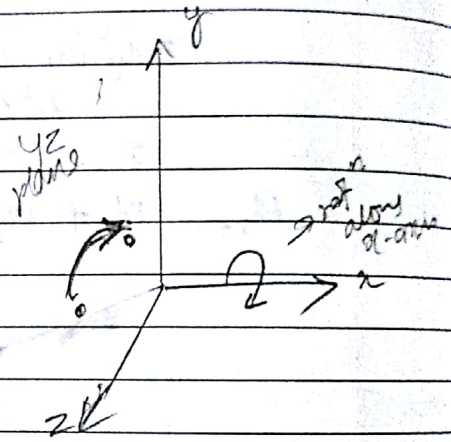 y
YZ
plane
rotn
along
x-axis
x
Z